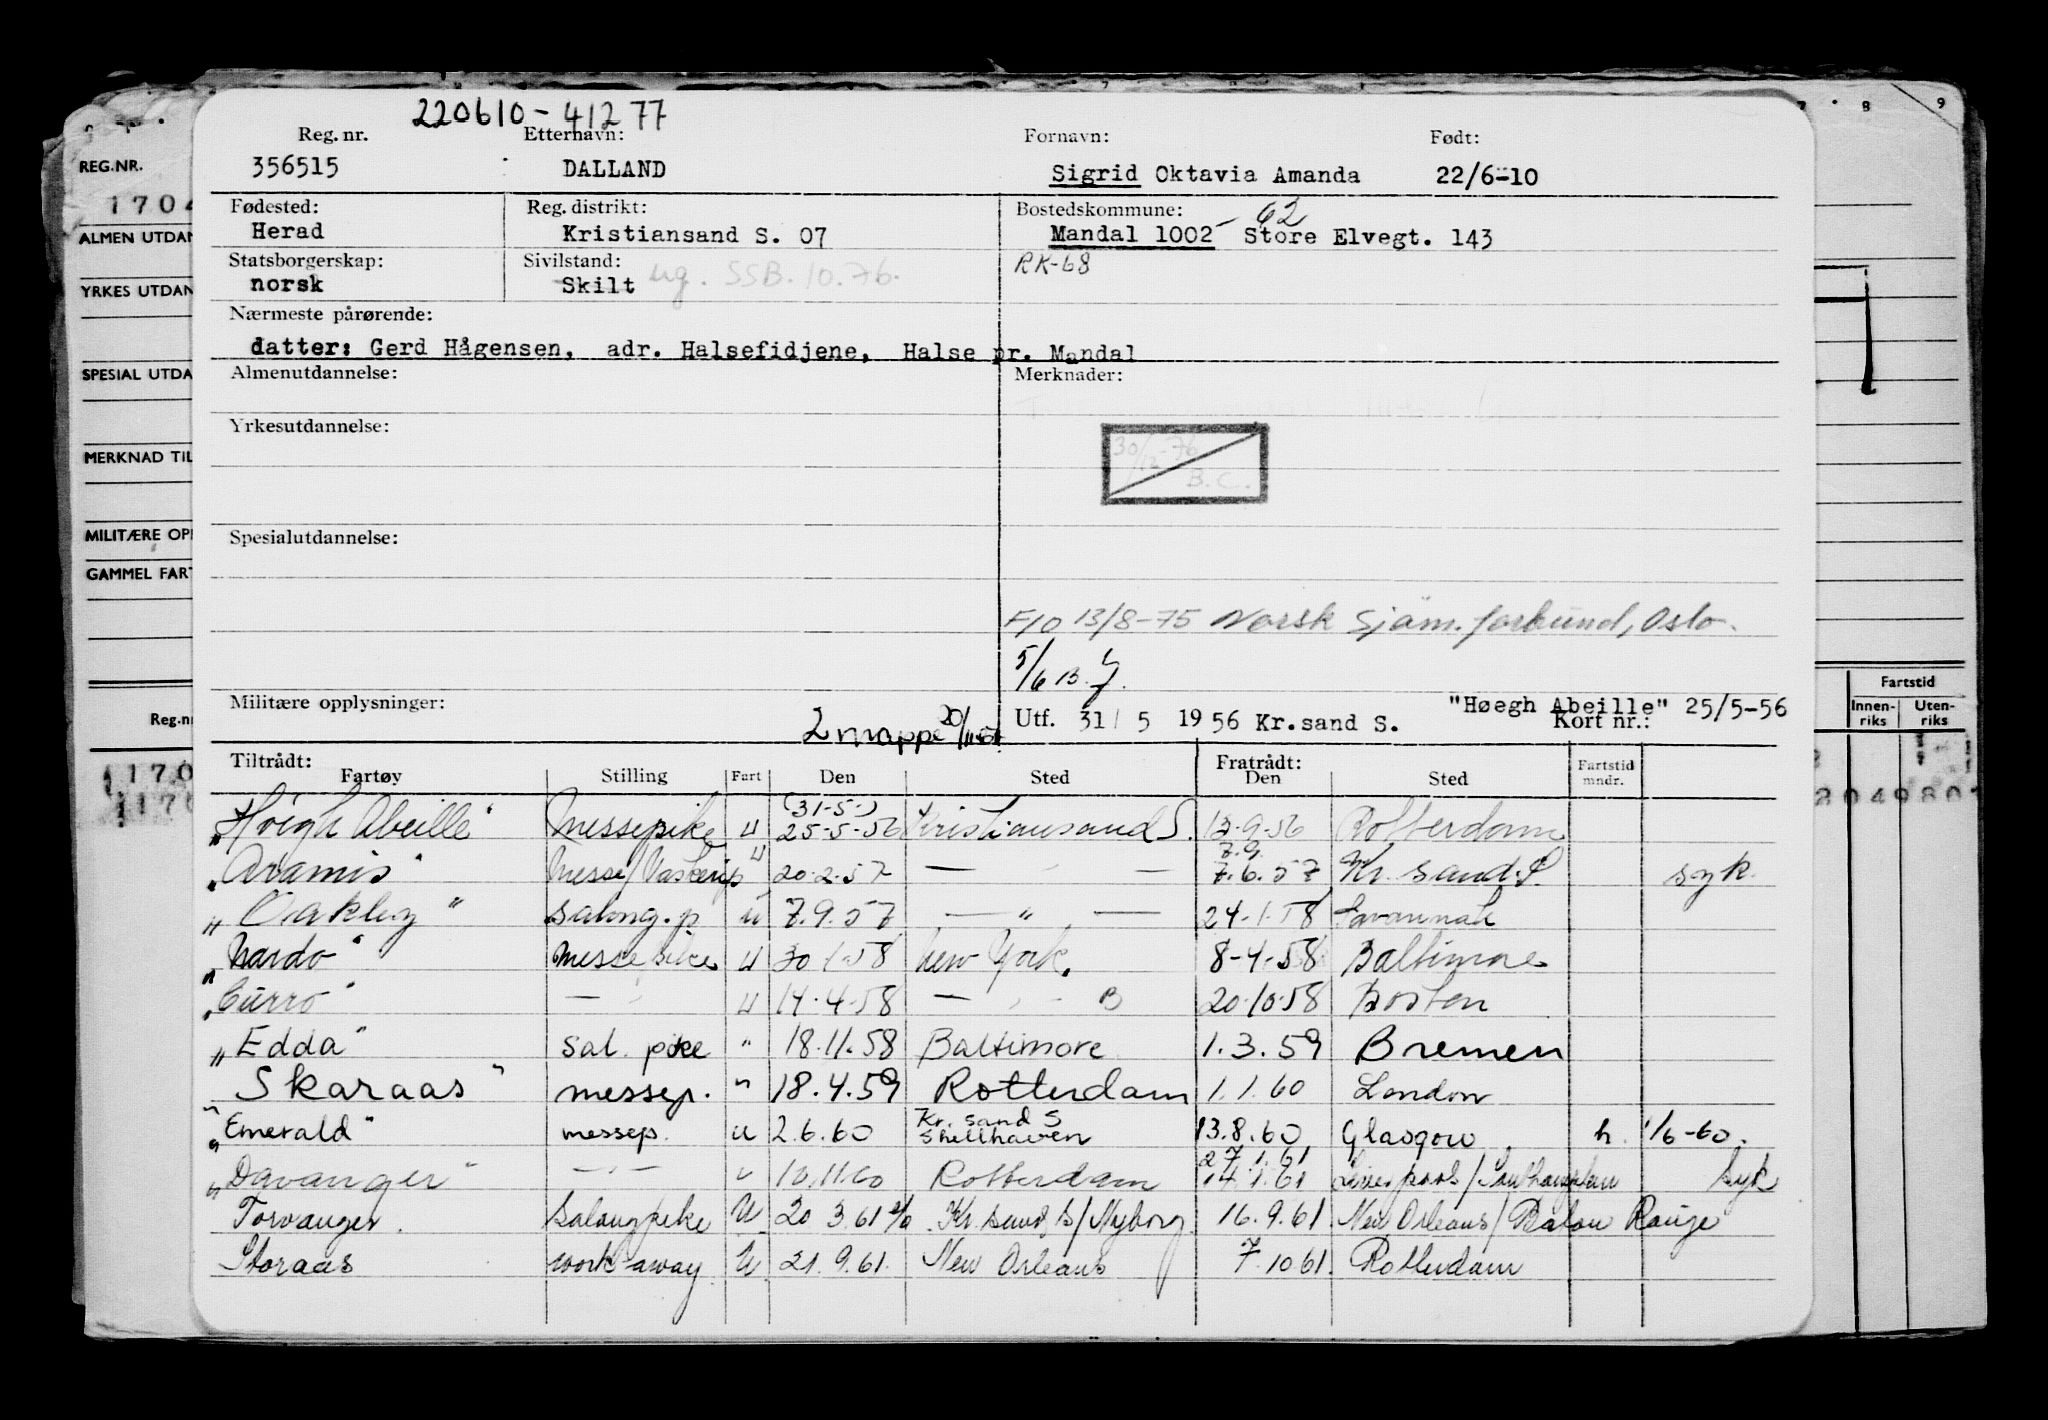 220610-41277
Reg. nr. Etternavn: Fornavn: Født:
356515 DALLAND Sigrid Oktavia Amanda 22/6-10
Fødested: Reg. distrikt: Bostedskommune: 62
Herad Kristiansand S. 07 Mandal 1002 - Store Elvegt. 143
Statsborgerskap: Sivilstand: RK-68
norsk Skilt ug. SSB.10.76.
Nærmeste pårørende:
datter: Gerd Hågensen, adr. Halsefidjene, Halse pr. Mandal
Almenutdannelse: Merknader:
Yrkesutdannelse:
30/12-76
B.C.
Spesialutdannelse:
F/O 13/8-75 Norsk Sjøm.forbund, Oslo.
5/6 B.
Militære opplysninger: 2 mappe 20/11 Utf. 31/5 1956 Kr.sand S. "Høegh Abeille" 25/5-56
Kort nr.:
Tiltrådt: Fratrådt:
Fartøy Stilling Fart Den Sted Den Sted Fartstid mndr.
(31-5-)
"Höegh Abeille" Messepike u 25-5-56 Kristiansand S. 13-9-56 Rotterdam
7.9.
"Aramis" Messe/Vaskerip u 20-2-57 — - — 7.6.57 Kr. sand.S. syk.
"Oakley" salong.p u 7.9.57 — " — 24-1-58 Savannah
"Nardo" Messepike u 30-1-58 New York. 8-4-58 Baltimore
"Curro" — " — u 14-4-58 — " - B 20-10-58 Boston
"Edda" sal. pike " 18.11.58 Baltimore 1.3.59 Bremen
Skaraas" messep. " 18.4.59 Rotterdam 1.1.60 London
"Emerald" messep. u 2.6.60 Kr. sand S Shellhaven 13.8.60 Glasgow h. 1/6-60.
27.1.61
"Davanger" —"— " 10.11.60 Rotterdam 14.1.61 Liverpool/Southampton Syk
Torvanger. Salongpike U 20 3.61 Kr. sand S/Nyborg 16.9.61 New Orleans/Baton Rouge
Storaas work-away U 21.9.61. New Orleans 7.10.61. Rotterdam
REG.NR.
1704
ALMEN UTDAN
YRKES UTDAN
SPESIAL UTDA
MERKNAD TIL
MILITÆRE OP
GAMMEL FART
Reg.nr
1170
1170
7 8 9
Fartstid
Innen-riks Uten-riks
3049801